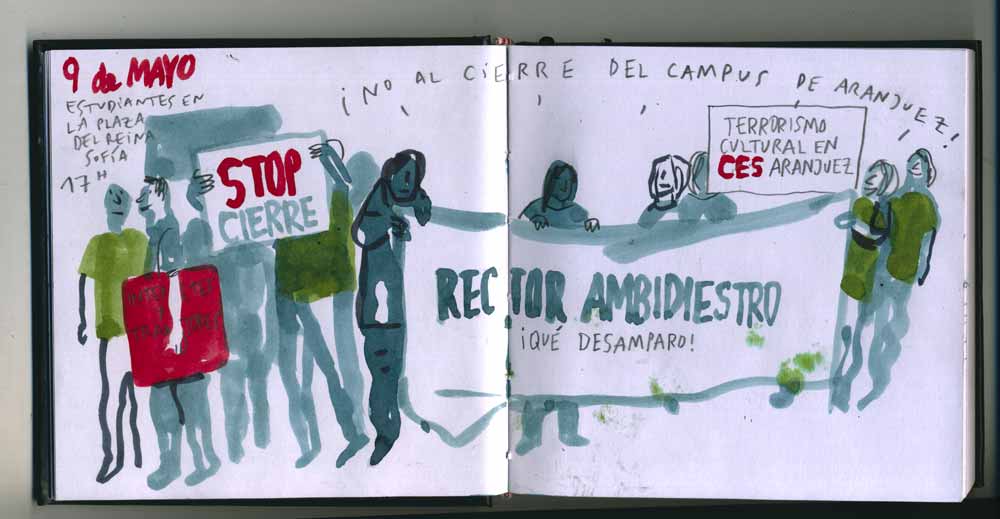 9 de MAYO
ESTUDIANTES EN
LA PLAZA
DEL REINA
SOFÍA
17 H
¡NO AL CIERRE DEL CAMPUS DE ARANJUEZ!
STOP
CIERRE
TERRORISMO
CULTURAL EN
CES ARANJUEZ
RECTOR AMBIDIESTRO
¡QUÉ DESAMPARO!